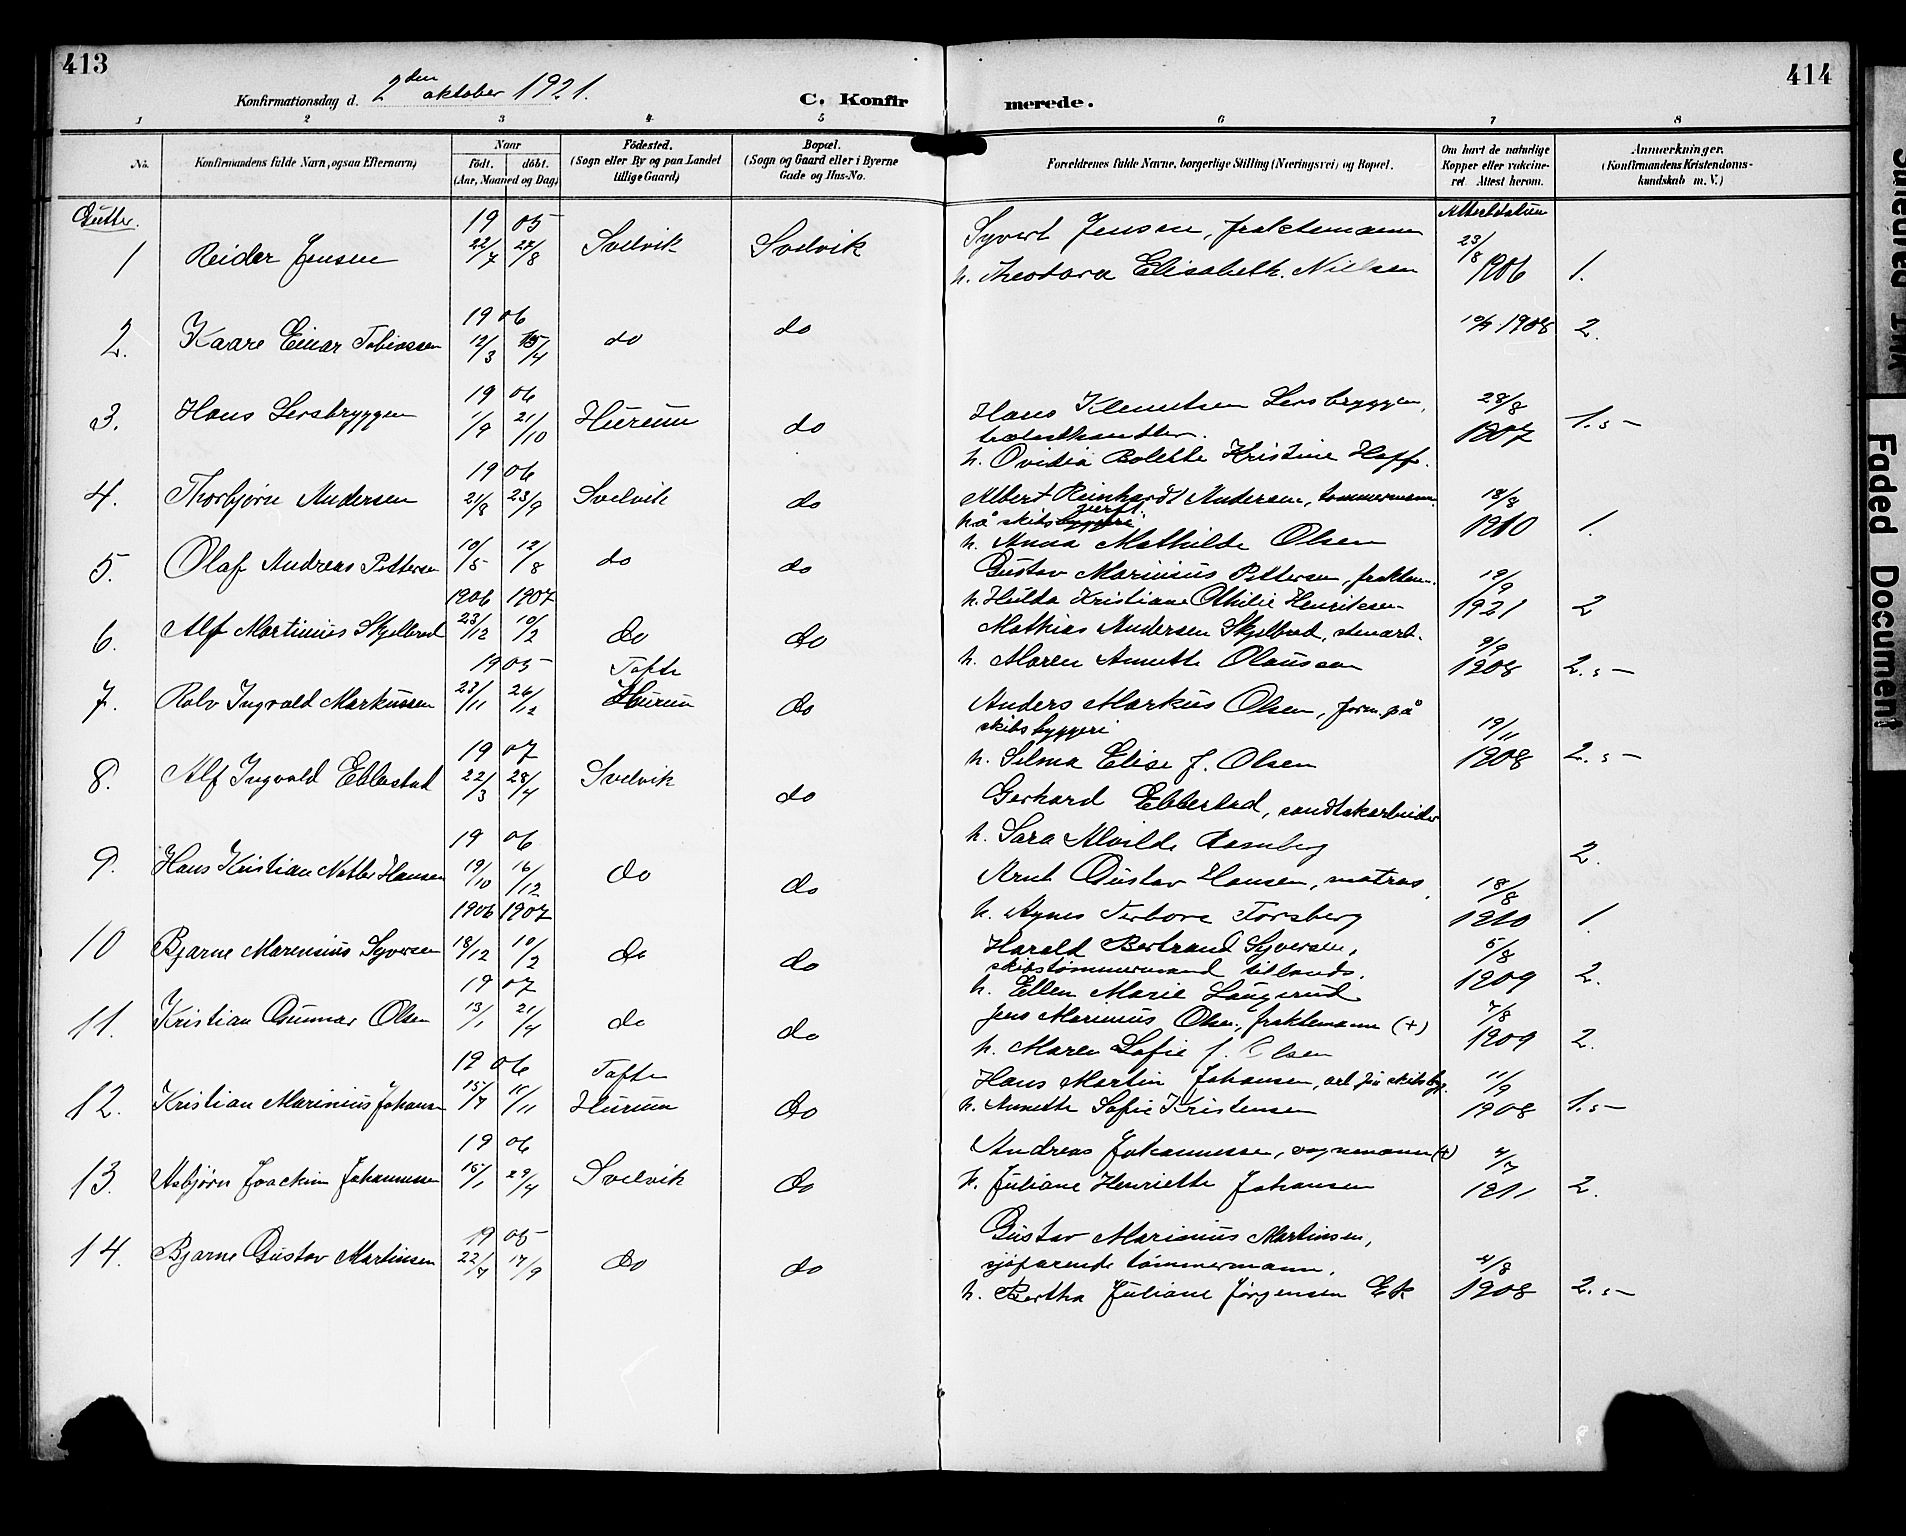 413
414
Konfirmationsdag d. 2den oktober 1921.
C. Konfirmerede.
1 2 3 4 5 6 7 8
No.
Konfirmandens fulde Navn, ogsaa Efternavn)
Naar
födt. döbt.
(Aar, Maaned og Dag)
Födested.
(Sogn eller By og paa Landet
tillige Gaard)
Bopæl.
(Sogn og Gaard eller i Byerne
Gade og Hus-No.
Forældrenes fulde Navne, borgerlige Stilling (Næringsvei) og Bopæl.
Om havt de naturlige
Kopper eller vakcine-
ret. Attest herom.
Anmærkninger.
(Konfirmandens Kristendoms-
kundskab m. V.)
Gutter.
Attestdatum
1 Reider Jensen 1905 22/7 27/8 Svelvik Svelvik Syvert Jensen, fraktemann
h. Theodora Elisabeth Nielsen 23/8 1906 1.
2. Kaare Einar Tobiassen 1906 12/3 15/4 do do 1908 2.
3. Hans Lersbryggen 1906 1/9 21/10 Hurum do Hans Klemetsen Lersbryggen,
trælasthandler.
h. Ovidia Bolette Kristine Hoff. 28/8 1907 1.5-
4. Thorbjørn Andersen 1906 21/8 23/9 Svelvik do Albert Reinhardt Andersen, tømmermann
på skibsverft.
h. Anna Mathilde Olsen 18/8 1910 1.
5. Olaf Andreas Pettersen 10/5 12/8 do do Gustav Marinius Pettersen, fraktem.
h. Hulda Kristiane Othilie Henriksen 19/9 1921 2
6. Alf Martinius Skjelbred 1906 1907 23/12 10/2 do do Mathias Andersen Skjelbred, stenarb.
h. Maren Annette Olaussen 9/9 1908 2.5-
7. Rolv Ingvald Markussen 1905 23/11 26/12 Tofte Hurum do Anders Markus Olsen, form. på
skibsbyggeri
h. Selma Elise f. Olsen 19/11 1908 2.5-
8. Alf Ingvald Ebbestad 1907 22/3 28/4 Svelvik do Gerhard Ebbestad, sandtakarbeider
h. Sara Alvilde Rosnberg 2.
9. Hans Kristian Hansen 1906 19/10 16/12 do do Arnt Gustav Hansen, matros,
h. Agnes Torsberg 18/8 1910 1.
10 Bjarne Marensius Syversen 1906 1907 18/12 10/2 do do Harald Bertrand Syversen,
skibstømmermand tillands.
h. Ellen Marie Laugerud 5/8 1909 2.
11. Kristian Gunnar Olsen 1907 13/1 21/4 do do Jens Marinius Olsen, fraktemann (+)
h. Maren Sofie f. Olsen 7/8 1909 2.
12. Kristian Marinius Johansen 1906 15/7 11/11 Tofte Hurum do Hans Martin Johansen, arb. på skibsbyg.
h. Annette Sofie Kristensen 11/9 1908 1.5-
13. Asbjørn Joachim Johannessen 1906 15/1 29/4 Svelvik do Andreas Johannessen, vognmann (+)
h. Juliane Henriette Johansen 4/7 1911 2.
14. Bjarne Gustav Martinsen 1905 22/7 17/9 do do Gustav Marinius Martinsen,
sjøfarende tømmermann,
h. Bertha Juliane Jørgensen Ek 4/8 1908 2.5-
Faded Document